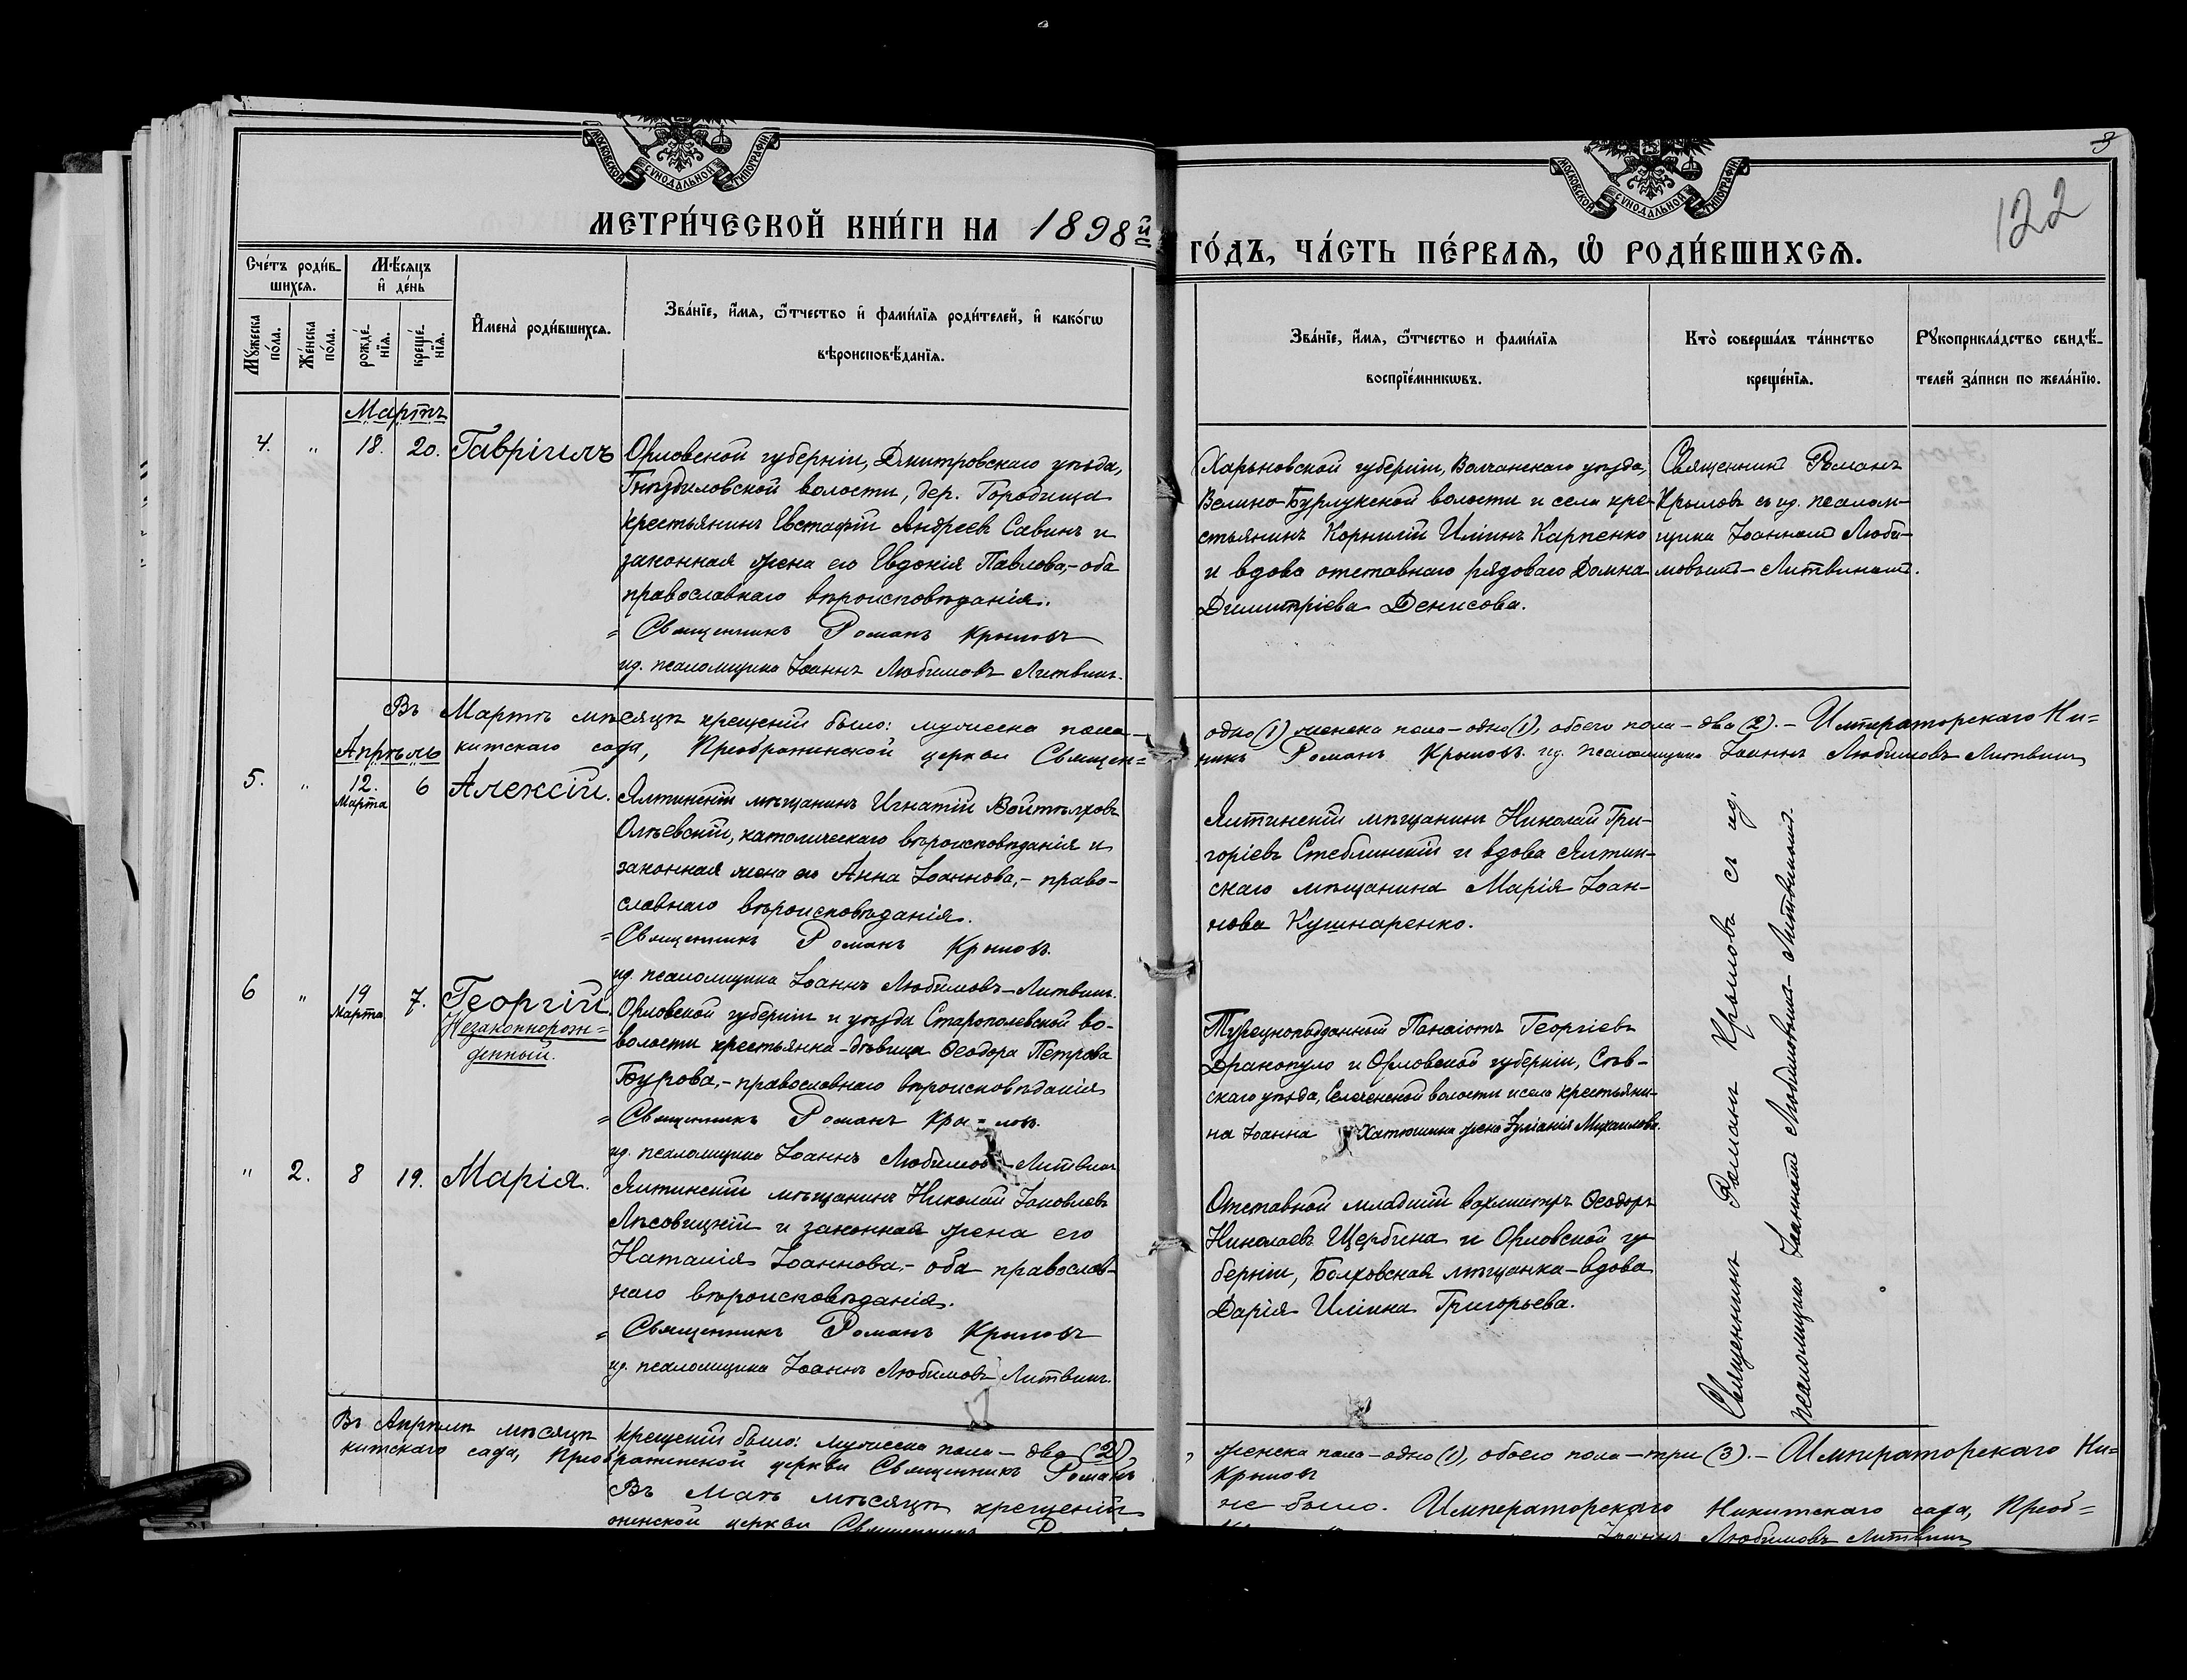 3
122
МОСКОВСКОЙ СѴНОДАЛЬНОЙ ТИПОГРАФІИ
МОСКОВСКОЙ СѴНОДАЛЬНОЙ ТИПОГРАФІИ
МЕТРИ́ЧЕСКОЙ КНИ́ГИ НА 1898й
ГО́ДЪ, ЧА́СТЬ ПЕ́РВАѦ, Ѽ РОДИ́ВШИХСѦ.
Сче́тъ роди́в-
шихсѧ.
Мѣ́сѧцъ
и҆ де́нь
Мꙋ́жеска
по́ла.
Же́нска
по́ла.
рожде́-
нїѧ.
креще́-
нїѧ.
И҆мена̀ роди́вшихсѧ.
Зва́нїе, и҆́мѧ, ѻ҆́тчество и҆ фами́лїѧ роди́телей, и҆ како́гѡ
вѣроисповѣ́данїѧ.
Зва́нїе, и҆́мѧ, ѻ҆́тчество и фами́лїѧ
воспрїе́мникѡвъ.
Кто̀ соверша́лъ та́инство
креще́нїѧ.
Рꙋкоприкла́дство свидѣ́-
телей за́писи по жела́нїю.
Мартъ
4. " 18. 20. Гавріилъ
Орловской губерніи, Дмитровскаго уѣзда,
Гнѣздиловской волости, дер. Городища
крестьянинъ Евстафій Андреевъ Савинъ и
законная жена его Евдокія Павлова,- оба
православнаго вѣроисповѣданія.
= Священникъ Романъ Крыловъ
ид. псаломщика Іоаннъ Любимовъ Литвинъ.
Харьковской губерніи, Волчанскаго уѣзда,
Велико-Бурлукской волости и села кре-
стьянинъ Корнилій Иліинъ Карпенко
и вдова отставнаго рядоваго Домна
Димитріева Денисова.
Священникъ Романъ
Крыловъ съ ид. псалом-
щика Іоанномъ Люби-
мовымъ-Литвиномъ.
Въ Мартѣ мѣсяцѣ крещеній было: мужеска пола-
одно (1) женска пола-одно (1), обоего пола-два (2).- Императорскаго Ни=
китскаго сада, Преображенской церкви Священ=
никъ Романъ Крыловъ. ид. псаломщика Іоаннъ Любимовъ Литвинъ
Апрѣль
5. " 12. Марта 6 Алексій.
Ялтинскій мѣщанинъ Игнатій Войтѣховъ
Олѣевскій, католическаго вѣроисповѣданія и
законная жена его Анна Іоаннова,- право-
славнаго вѣроисповѣданія.
= Священникъ Романъ Крыловъ.
ид. псаломщика Іоаннъ Любимовъ-Литвинъ.
Ялтинскій мѣщанинъ Николай Гри-
горіевъ Стеблинскій и вдова Ялтин-
скаго мѣщанина Марія Іоан-
нова Кушнаренко.
6 " 19 Марта 7. Георгій.
Незаконнорож=
денный.
Орловской губерніи и уѣзда Старополевской во-
волости крестьянка-дѣвица Ѳеодора Петрова
Бурова,- православнаго вѣроисповѣданія
= Священникъ Романъ Кры=ловъ.
ид. псаломщика Іоаннъ Любимовъ-Литвинъ
Турецкоподданный Панаіотъ Георгіевъ
Дракопуло и Орловской губерніи, Сѣв-
скаго уѣзда, волости и села крестьяни-
на Іоанна Хатюшина жена Іуліанія Михаилова.
" 2. 8 19. Марія.
Ялтинскій мѣщанинъ Николай Іаковлевъ
Лѣсовицкій и законная жена его
Наталія Іоаннова,- оба православ-
наго вѣроисповѣданія.
= Священникъ Романъ Крыловъ
ид. псаломщика Іоаннъ Любимовъ Литвинъ.
Отставной младшій вахмистръ Ѳеодоръ
Николаевъ Щербина и Орловской гу-
берніи, Болховская мѣщанка-вдова
Дарія Иліина Григорьева.
Священникъ Романъ Крыловъ съ ид.
псаломщика Іоанномъ Любимовымъ-Литвиномъ.
Въ Апрѣлѣ мѣсяцѣ крещеній было: мужеска пола- два (2),
женска пола-одно (1), обоего пола-три (3).- Императорскаго Ни=
китскаго сада, Преображенской церкви Священникъ Романъ
Крыловъ
Въ Маѣ мѣсяцѣ крещеній
не было. Императорскаго Никитскаго сада, Преоб=
женской церкви Священникъ
Іоаннъ Любимовъ Литвинъ